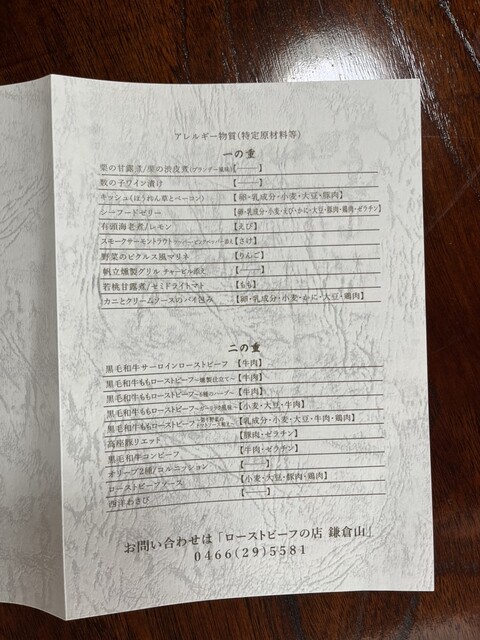 アレルギー物質(特定原材料等)
一の重
栗の甘露煮/栗の渋皮煮(ブランデー風味)【――】
数の子ワイン漬け【――】
キッシュ(ほうれん草とベーコン)【卵・乳成分・小麦・大豆・豚肉】
シーフードゼリー【卵・乳成分・小麦・えび・かに・大豆・豚肉・鶏肉・ゼラチン】
有頭海老煮/レモン【えび】
スモークサーモントラウト 添え【さけ】
野菜のピクルス風マリネ【りんご】
帆立燻製グリル チャービル添え【――】
若桃甘露煮/セミドライトマト【もも】
カニとクリームソースのパイ包み【卵・乳成分・小麦・かに・大豆・鶏肉】
二の重
黒毛和牛サーロインローストビーフ【牛肉】
黒毛和牛ももローストビーフ~燻製仕立て~【牛肉】
黒毛和牛ももローストビーフ~5種のハーブ~【牛肉】
黒毛和牛ももローストビーフ~ガーリック風味~【小麦・大豆・牛肉】
黒毛和牛ももローストビーフ【乳成分・小麦・大豆・牛肉・鶏肉】
高座豚リエット【豚肉・ゼラチン】
黒毛和牛コンビーフ【牛肉・ゼラチン】
オリーブ2種/コルニッション【――】
ローストビーフソース【小麦・大豆・豚肉・鶏肉】
西洋わさび【――】
お問い合わせは「ローストビーフの店 鎌倉山」
0466(29)5581